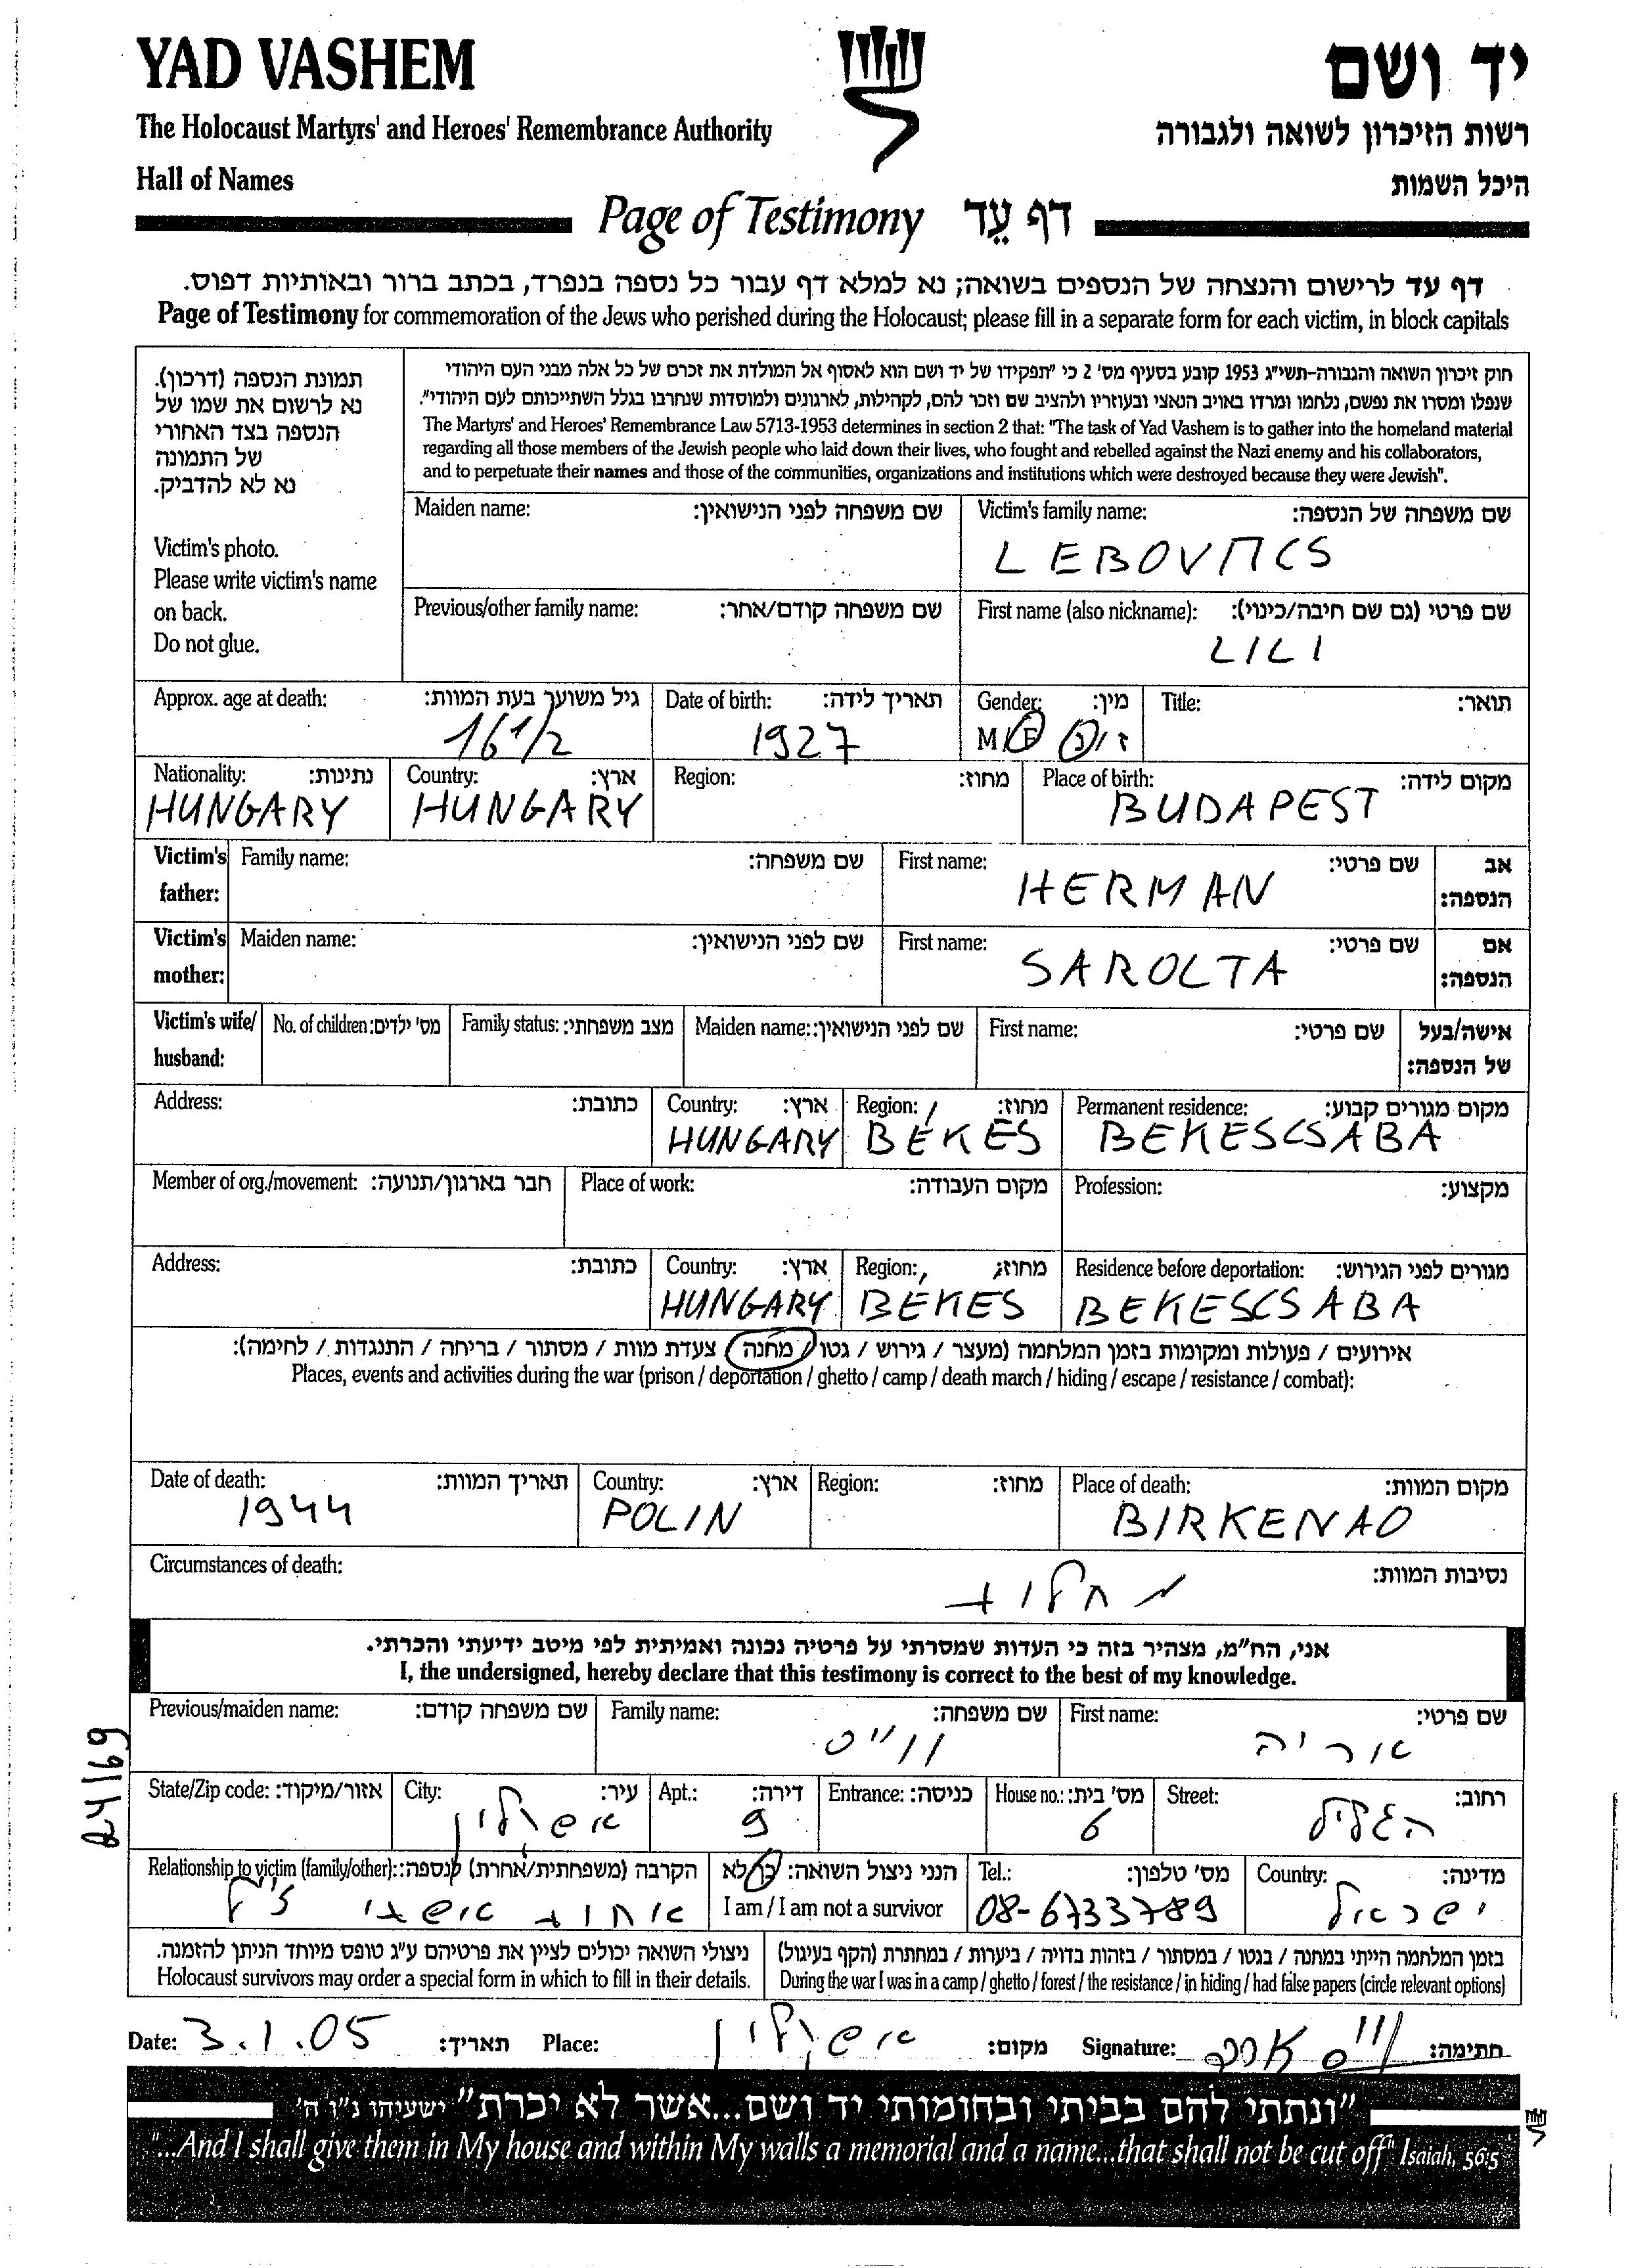 YAD VASHEM יד ושם
The Holocaust Martyrs' and Heroes' Remembrance Authority רשות הזיכרון לשואה ולגבורה
Hall of Names היכל השמות
Page of Testimony דף עֵד
דף עד לרישום והנצחה של הנספים בשואה; נא למלא דף עבור כל נספה בנפרד, בכתב ברור ובאותיות דפוס.
Page of Testimony for commemoration of the Jews who perished during the Holocaust; please fill in a separate form for each victim, in block capitals
תמונת הנספה (דרכון).
נא לרשום את שמו של
הנספה בצד האחורי
של התמונה
נא לא להדביק.
Victim's photo.
Please write victim's name
on back.
Do not glue.
חוק זיכרון השואה והגבורה-תשי"ג 1953 קובע בסעיף מס' 2 כי "תפקידו של יד ושם הוא לאסוף אל המולדת את זכרם של כל אלה מבני העם היהודי
שנפלו ומסרו את נפשם, נלחמו ומרדו באויב הנאצי ובעוזריו ולהציב שם וזכר להם, לקהילות, לארגונים ולמוסדות שנחרבו בגלל השתייכותם לעם היהודי".
The Martyrs' and Heroes' Remembrance Law 5713-1953 determines in section 2 that: "The task of Yad Vashem is to gather into the homeland material
regarding all those members of the Jewish people who laid down their lives, who fought and rebelled against the Nazi enemy and his collaborators,
and to perpetuate their names and those of the communities, organizations and institutions which were destroyed because they were Jewish".
Maiden name: שם משפחה לפני הנישואין: Victim's family name: שם משפחה של הנספה:
LEBOVITCS
Previous/other family name: שם משפחה קודם/אחר: First name (also nickname): שם פרטי (גם שם חיבה/כינוי):
LILI
Approx. age at death: גיל משוער בעת המוות: Date of birth: תאריך לידה: Gender: מין: Title: תואר:
16 1/2 1927 M/F ז/נ
Nationality: נתינות: Country: ארץ: Region: מחוז: Place of birth: מקום לידה:
HUNGARY HUNGARY BUDAPEST
Victim's father: Family name: שם משפחה: First name: שם פרטי: אב הנספה:
HERMAN
Victim's mother: Maiden name: שם לפני הנישואין: First name: שם פרטי: אם הנספה:
SAROLTA
Victim's wife/husband: No. of children: מס' ילדים: Family status: מצב משפחתי: Maiden name: שם לפני הנישואין: First name: שם פרטי: אישה/בעל של הנספה:
Address: כתובת: Country: ארץ: Region: מחוז: Permanent residence: מקום מגורים קבוע:
HUNGARY BÉKES BEKESCSABA
Member of org./movement: חבר בארגון/תנועה: Place of work: מקום העבודה: Profession: מקצוע:
Address: כתובת: Country: ארץ: Region: מחוז: Residence before deportation: מגורים לפני הגירוש:
HUNGARY BÉKES BEKESCSABA
אירועים / פעולות ומקומות בזמן המלחמה (מעצר / גירוש / גטו / מחנה / צעדת מוות / מסתור / בריחה / התנגדות / לחימה):
Places, events and activities during the war (prison / deportation / ghetto / camp / death march / hiding / escape / resistance / combat):
Date of death: תאריך המוות: Country: ארץ: Region: מחוז: Place of death: מקום המוות:
1944 POLIN BIRKENAO
Circumstances of death: נסיבות המוות:
אני, הח"מ, מצהיר בזה כי העדות שמסרתי על פרטיה נכונה ואמיתית לפי מיטב ידיעתי והכרתי.
I, the undersigned, hereby declare that this testimony is correct to the best of my knowledge.
Previous/maiden name: שם משפחה קודם: Family name: שם משפחה: First name: שם פרטי:
ווייס אריה
24/69
State/Zip code: אזור/מיקוד: City: עיר: Apt.: דירה: Entrance: כניסה: House no.: מס' בית: Street: רחוב:
אשקלון 9 6 הגליל
Relationship to victim (family/other): הקרבה (משפחתית/אחרת) לנספה: הנני ניצול השואה: כן/לא Tel.: מס' טלפון: Country: מדינה:
אחות אשתי ז"ל I am / I am not a survivor 08-6733789 ישראל
ניצולי השואה יכולים לציין את פרטיהם ע"ג טופס מיוחד הניתן להזמנה. בזמן המלחמה הייתי במחנה / בגטו / במסתור / בזהות בדויה / ביערות / במחתרת (הקף בעיגול)
Holocaust survivors may order a special form in which to fill in their details. During the war I was in a camp / ghetto / forest / the resistance / in hiding / had false papers (circle relevant options)
Date: 3.1.05 תאריך: Place: אשקלון מקום: Signature: חתימה:
"ונתתי להם בביתי ובחומותי יד ושם...אשר לא יכרת" ישעיהו נ"ו ה'
"...And I shall give them in My house and within My walls a memorial and a name...that shall not be cut off" Isaiah, 56:5